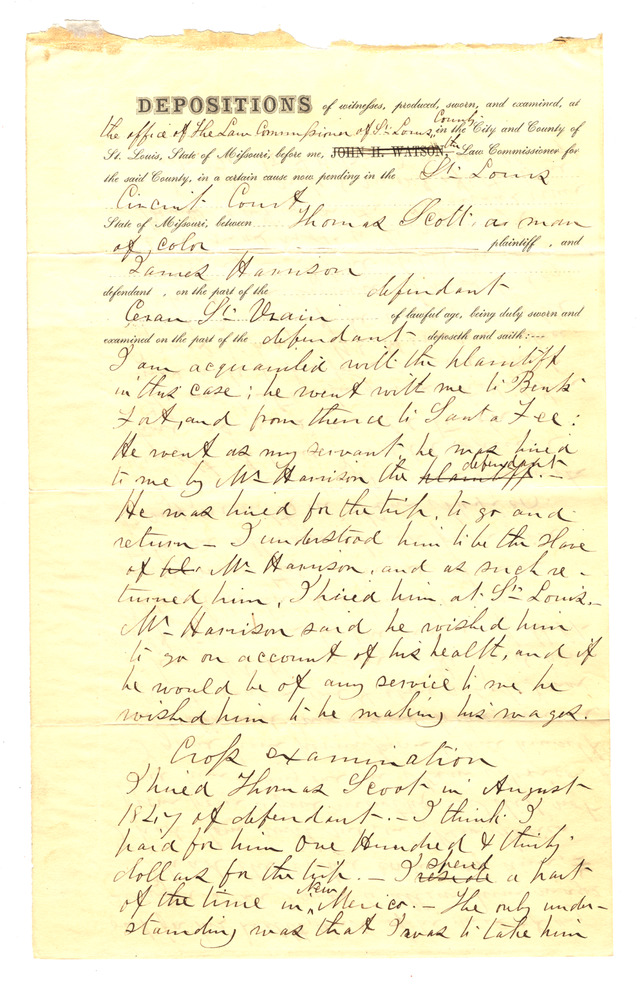 DEPOSITIONS of witnesses, produced, sworn, and examined, at
the office of the Law Commissioner of St Louis, County in the City and County of
St. Louis, State of Missouri, before me, JOHN H. WATSON, Law Commissioner for
the said County, in a certain cause now pending in the St Louis
Circuit Court
State of Missouri, between Thomas Scott, a man
of color plaintiff, and
James Harrison
defendant, on the part of the defendant
Ceran St Vrain of lawful age, being duly sworn and
examined on the part of the defendant deposeth and saith:
I am acquainted with the plaintiff
in this case; he went with me to Bents
Fort, and from thence to Santa Fee:
He went as my servant, he was hired
to me by Mr Harrison the plaintiff defendant.—
He was hired for the trip, to go and
return — I understood him to be the slave
of Mr Harrison, and as such re-
turned him, I hired him at St Louis.—
Mr Harrison said he wished him
to go on account of his health, and if
he would be of any service to me he
wished him to be making his wages.
Cross examination
I hired Thomas Scott in August
1847 of defendant.— I think I
paid for him One Hundred & thirty
dollars for the trip.— I reside spend a part
of the time in New Mexico.— The only under-
standing was that I was to take him